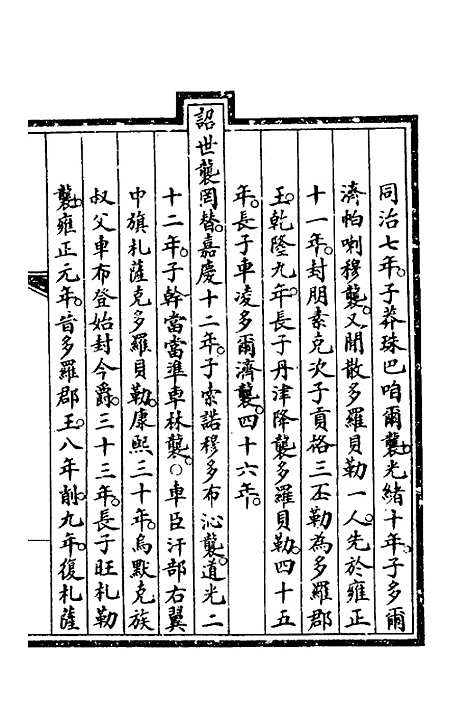 同治七年。子莽珠巴咱爾襲。光緒十年。子多爾
濟怕喇穆襲。又閒散多羅貝勒一人。先於雍正
十一年。封朋素克次子貢格三丕勒為多羅郡
王。乾隆九年。長子丹津降襲多羅貝勒。四十五
年。長子車凌多爾濟襲。四十六年。
詔世襲罔替。嘉慶十二年。子索諾穆多布沁襲。道光二
十二年。子幹當當準車林襲。○車臣汗部右翼
中旗札薩克多羅貝勒。康熙三十年。烏默克族
叔父車布登始封今爵。三十三年。長子旺札勒
襲。雍正元年。晉多羅郡王。八年削。九年。復札薩